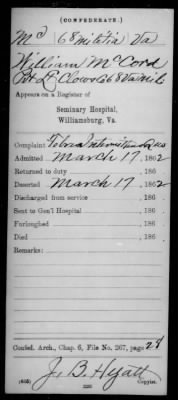 (CONFEDERATE.)
Mc | 68 militia | Va
William McCord
Pvt Co
68 Va Mil
Appears on a Register of
Seminary Hospital,
Williamsburg, Va.
Complaint Febris Intermittens
Admitted March 17, 1862
Returned to duty , 186
Deserted March 17, 1862
Discharged from service , 186
Sent to Gen'l Hospital , 186
Furloughed , 186
Died , 186
Remarks:
Confed. Arch., Chap. 6, File No. 267, page 28
J. B. Hyatt
(635) Copyist.